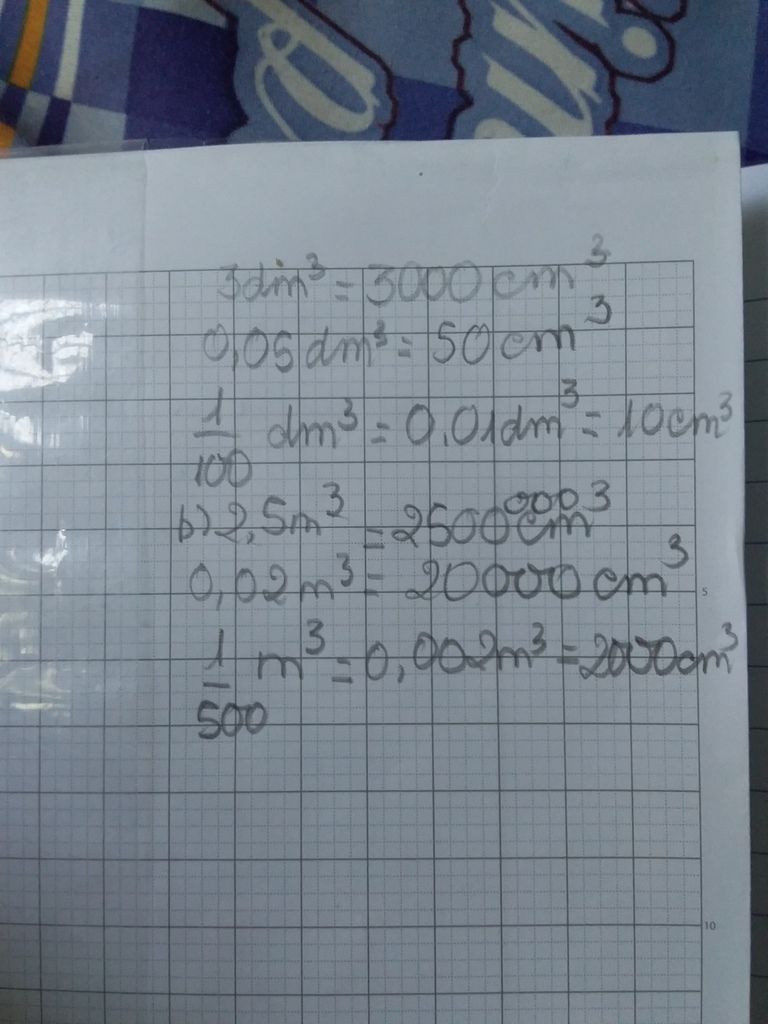 3dm³ = 3000 cm³
0,05 dm³ = 50 cm³
1/100 dm³ = 0,01dm³ = 10cm³
b) 2,5m³ = 2500000cm³
0,02m³ = 20000 cm³
1/500 m³ = 0,002m³ = 2000cm³
5
10